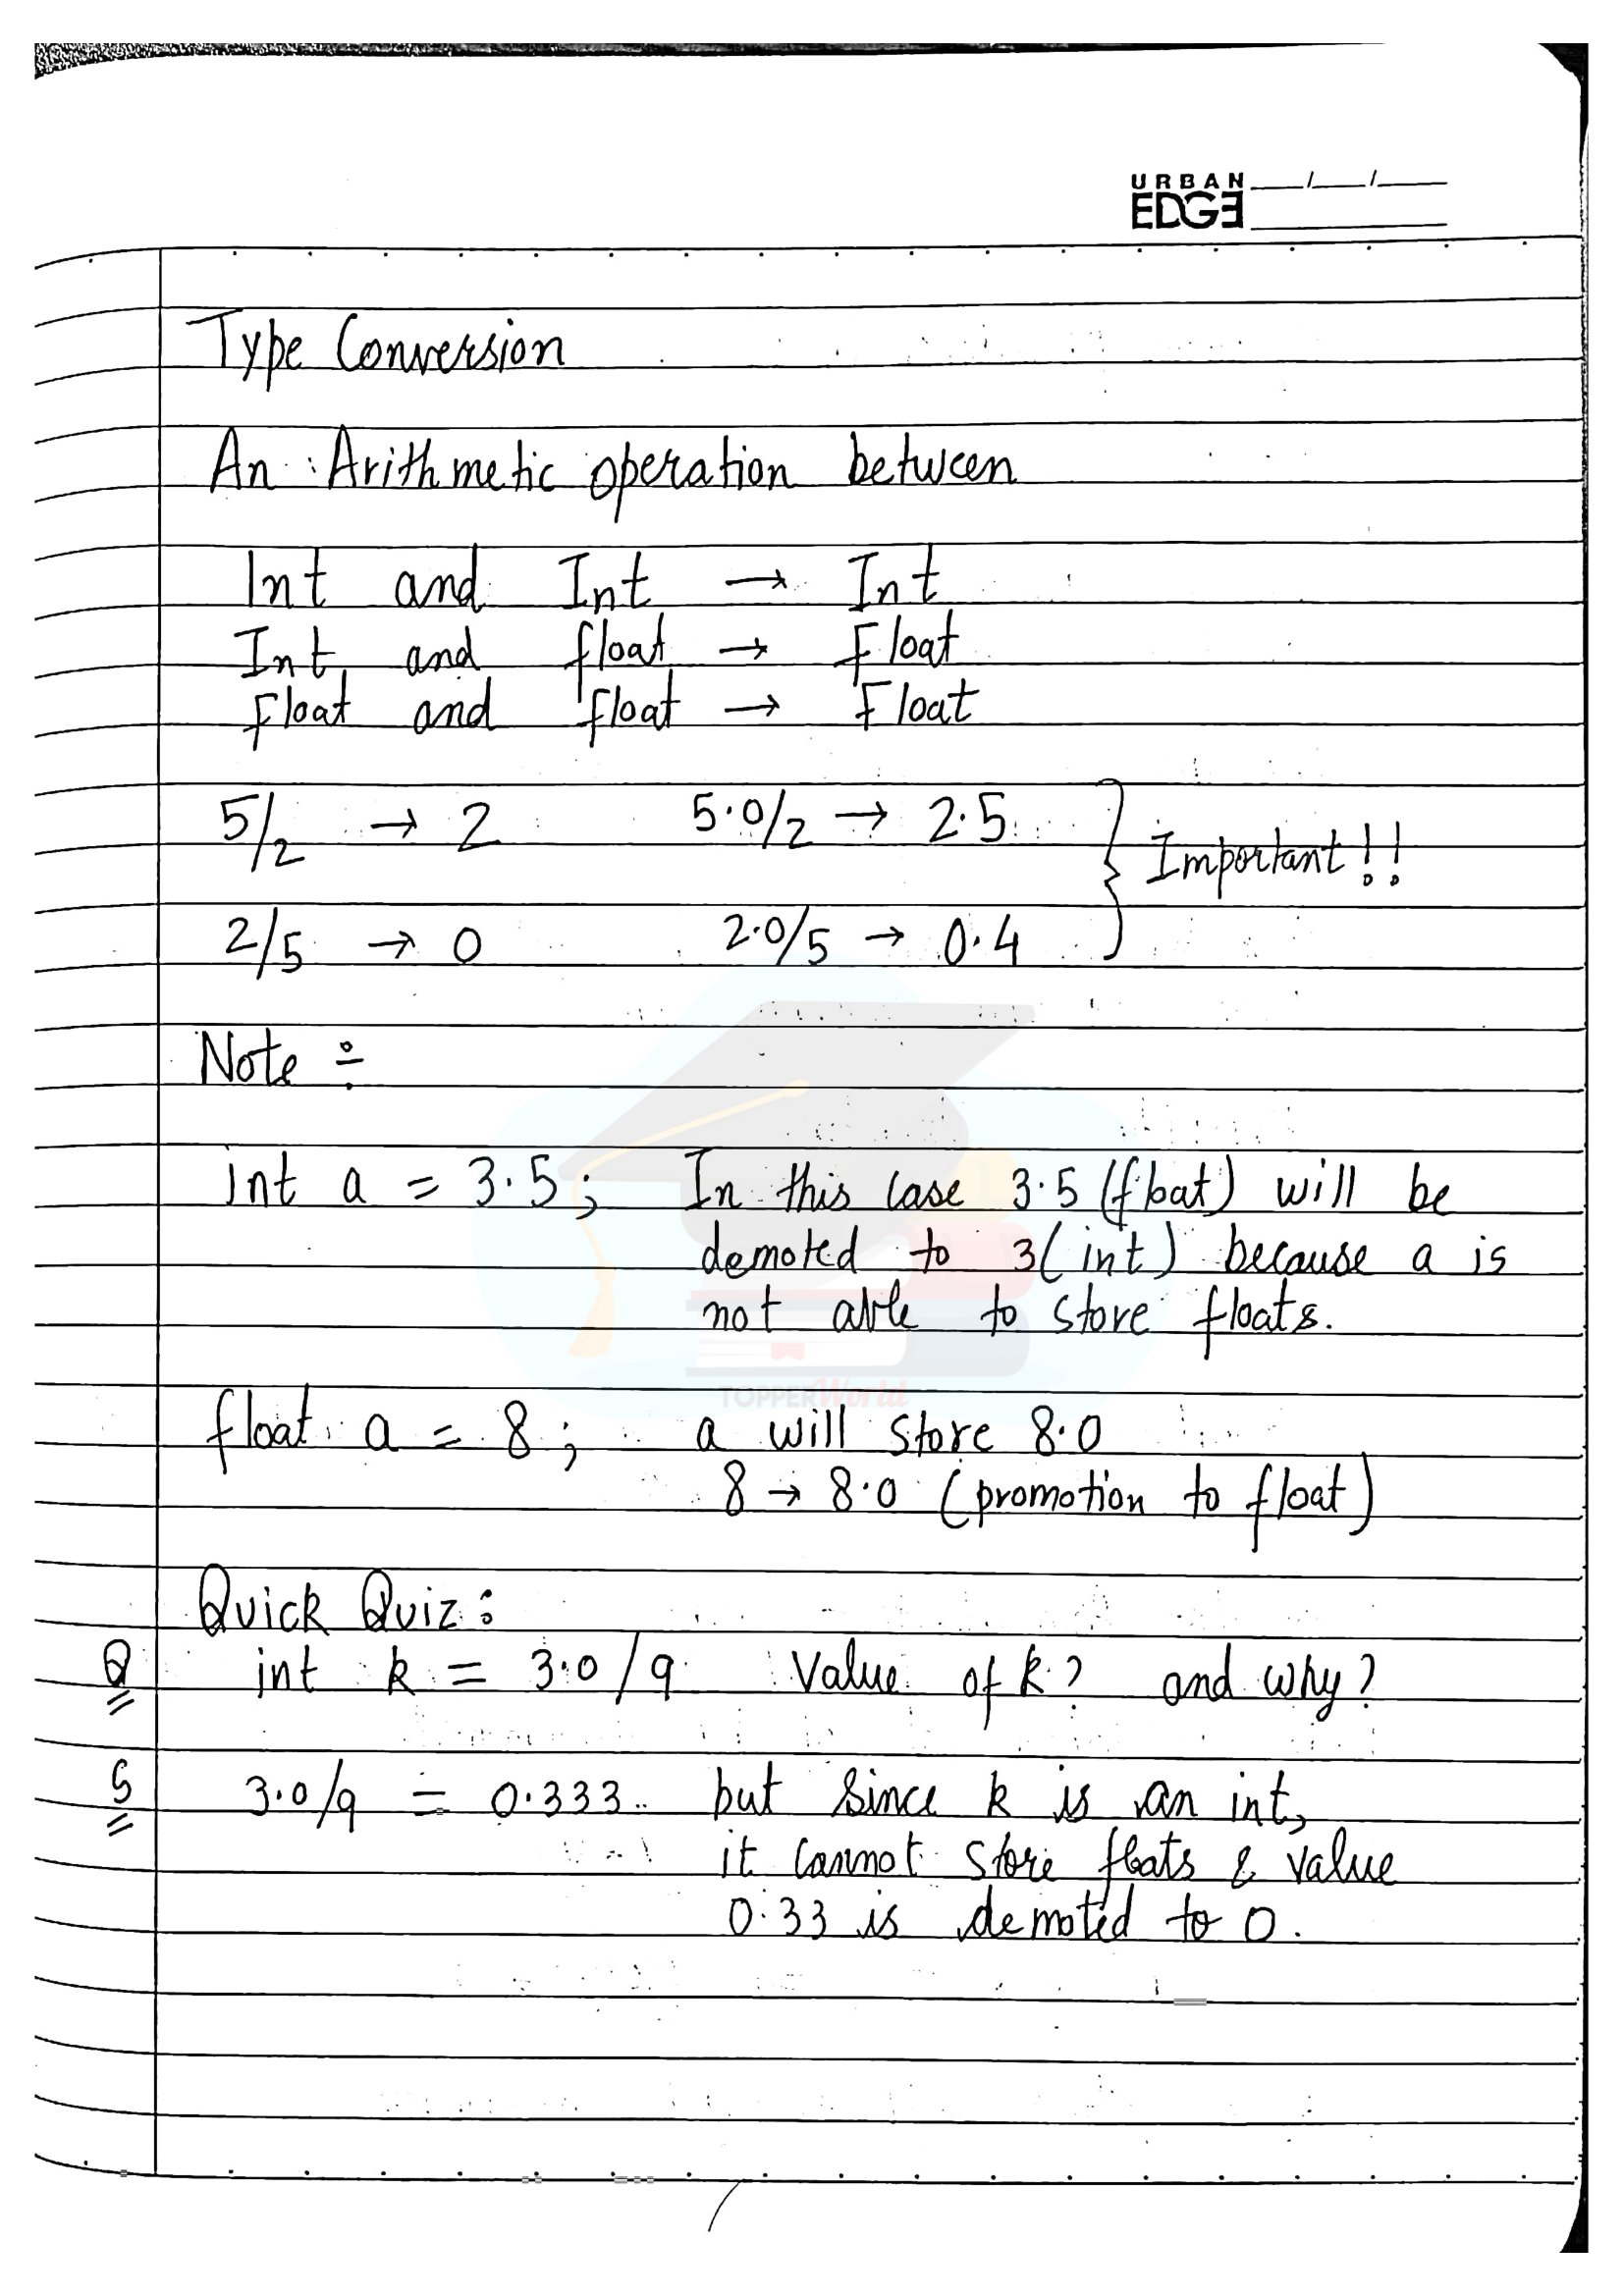 URBAN
EDGE
Type Conversion
An Arithmetic operation between
Int and Int → Int
Int and float → Float
Float and float → Float
5/2 → 2 5.0/2 → 2.5
Important!!
2/5 → 0 2.0/5 → 0.4
Note ÷
int a = 3.5; In this case 3.5 (float) will be
demoted to 3(int) because a is
not able to store floats.
TOPPERWorld
float a = 8; a will store 8.0
8 → 8.0 (promotion to float)
Quick Quiz:
Q int k = 3.0/9 Value of k? and why?
S 3.0/9 = 0.333.. but since k is an int,
it cannot store floats & value
0.33 is demoted to 0.